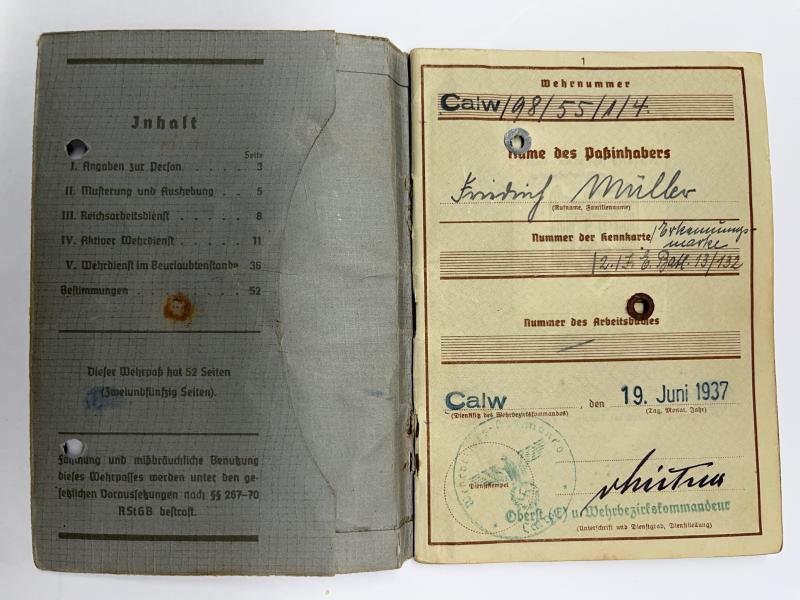 Inhalt
Seite
I. Angaben zur Person . . . . . 3
II. Musterung und Aushebung . . . 5
III. Reichsarbeitsdienst . . . . . . 8
IV. Aktiver Wehrdienst . . . . . . 11
V. Wehrdienst im Beurlaubtenstande 36
Bestimmungen . . . . . . . . . 52
Dieser Wehrpaß hat 52 Seiten
(Zweiundfünfzig Seiten).
Fälschung und mißbräuchliche Benutzung
dieses Wehrpasses werden unter den ge-
setzlichen Voraussetzungen nach §§ 267–70
RStGB bestraft.
1
Wehrnummer
Calw/98/55/1/4.
Name des Paßinhabers
Friedrich Müller
(Rufname, Familienname)
Nummer der Kennkarte/Erkennungs-
marke
12./I. E. Batl. 13/132
Nummer des Arbeitsbuches
—
Calw, den 19. Juni 1937
(Dienstsitz des Wehrbezirkskommandos) (Tag, Monat, Jahr)
Dienststempel
Oberst (E) u. Wehrbezirkskommandeur
(Unterschrift und Dienstgrad, Dienststellung)